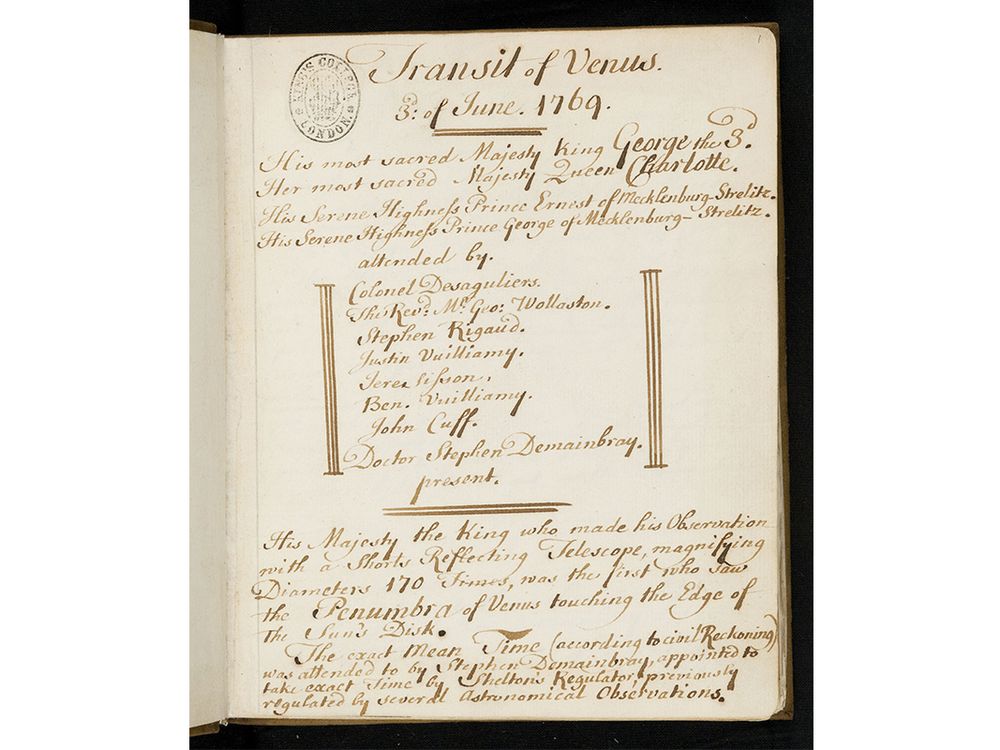 1
KING'S COLLEGE LONDON.
Transit of Venus.
3d: of June. 1769.
His most sacred Majesty King George the 3d.
Her most sacred Majesty Queen Charlotte.
His Serene Highness Prince Ernest of Mecklenburg-Strelitz.
His Serene Highness Prince George of Mecklenburg-Strelitz.
attended by.
Colonel Desaguliers.
The Revd: Mr. Geo: Wollaston.
Stephen Rigaud.
Justin Vuilliamy.
Jere. Sisson.
Ben. Vuilliamy.
John Cuff.
Doctor Stephen Demainbray.
present.
His Majesty the King who made his Observation
with a Shorts Reflecting Telescope, magnifying
Diameters 170 Times, was the first who saw
the Penumbra of Venus touching the Edge of
the Sun's Disk.
The exact Mean Time (according to civil Reckoning)
was attended to by Stephen Demainbray, appointed to
take exact Time by Shelton's Regulator, previously
regulated by several Astronomical Observations.